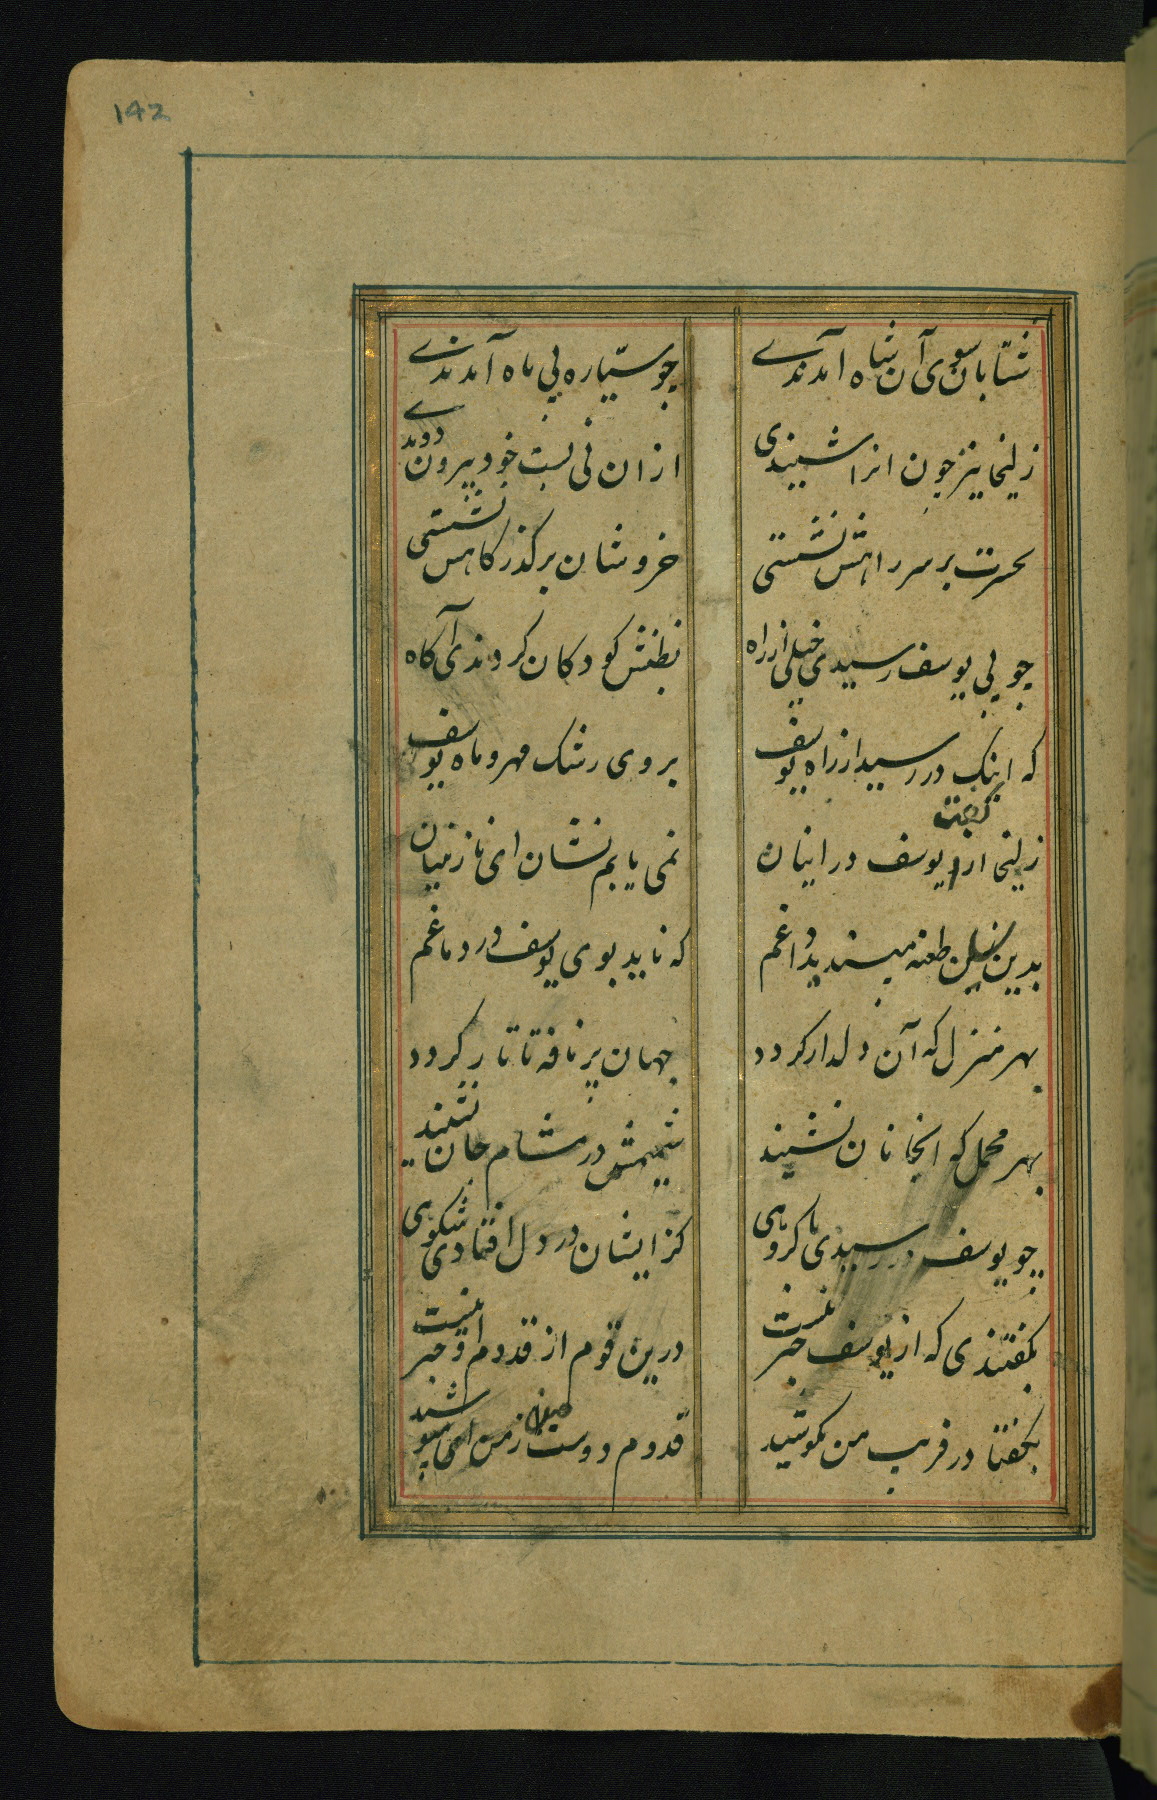 142
شتابان سوی آن شاه آمدندے چو سیّاره پی ماه آمدندے
زلیخا نیز چون انرا شنیدی ازان نی بست خود بیرون دویدے
بحسرت بر سر راهش نشستی خروشان بر کذرکاهش نشستی
چو بی یوسف رسیدی خیلی از راه بطنش کودکان کردندی آکاه
که اینک در رسید از راه یوسف بروی رشک مهر و ماه یوسف
زلیخا کفت از یوسف در اینان نمی یابم نشان ای نازنینان
بدین طعنه مپسندید داغم که ناید بوی یوسف در دماغم
بهر منزل که آن دلدار کردد جهان پر نافه تاتار کردد
بهر محمل که انجانان نشیند شمیمش در مشام جان نشیند
چو یوسف در رسیدی با کروهی کز ایشان در دل افتادی شکوهی
بکفتندی که از یوسف خبر نیست درین قوم از قدوم او خبر نیست
بکفتا در فریب من مکوشید قدوم دوست از من مپوشید